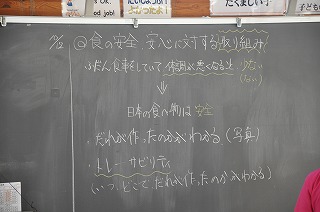 OK,
od job!
だいじょうぶ!
たくましい子
子ども
11/12 ◎食の安全、安心に対する取り組み
ふだん食事をしていて 体調が悪くなること 少ない
(ない)
⇓
日本の食べ物は 安全
・だれが作ったのかがわかる(写真)
・トレーサビリティ
(いつ、どこで、だれが作ったのかがわかる)